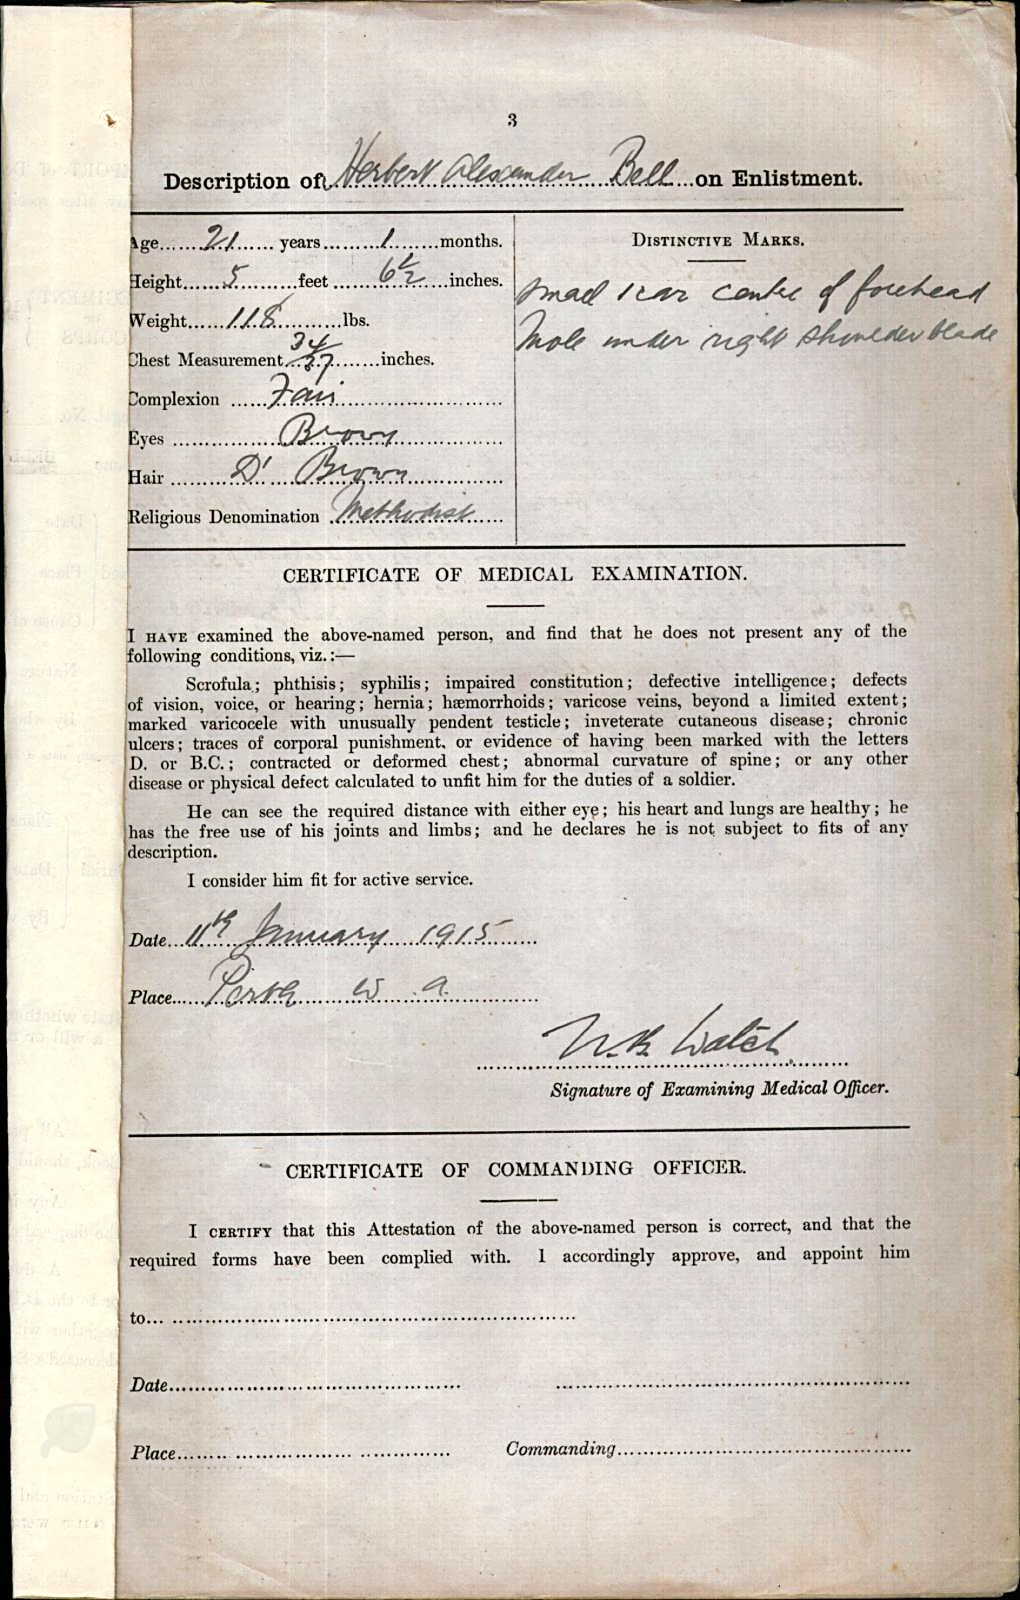 3
Description of Herbert Alexander Bell on Enlistment.
Age 21 years 1 months.
Height 5 feet 6½ inches.
Weight 118 lbs.
Chest Measurement 34/37 inches.
Complexion Fair
Eyes Brown
Hair D' Brown
Religious Denomination Methodist
DISTINCTIVE MARKS.
Small scar centre of forehead
Mole under right shoulder blade
CERTIFICATE OF MEDICAL EXAMINATION.
I HAVE examined the above-named person, and find that he does not present any of the
following conditions, viz.:—
Scrofula; phthisis; syphilis; impaired constitution; defective intelligence; defects
of vision, voice, or hearing; hernia; hæmorrhoids; varicose veins, beyond a limited extent;
marked varicocele with unusually pendent testicle; inveterate cutaneous disease; chronic
ulcers; traces of corporal punishment, or evidence of having been marked with the letters
D. or B.C.; contracted or deformed chest; abnormal curvature of spine; or any other
disease or physical defect calculated to unfit him for the duties of a soldier.
He can see the required distance with either eye; his heart and lungs are healthy; he
has the free use of his joints and limbs; and he declares he is not subject to fits of any
description.
I consider him fit for active service.
Date 11th January 1915
Place Perth W.A.
Signature of Examining Medical Officer.
CERTIFICATE OF COMMANDING OFFICER.
I CERTIFY that this Attestation of the above-named person is correct, and that the
required forms have been complied with. I accordingly approve, and appoint him
to
Date
Place Commanding